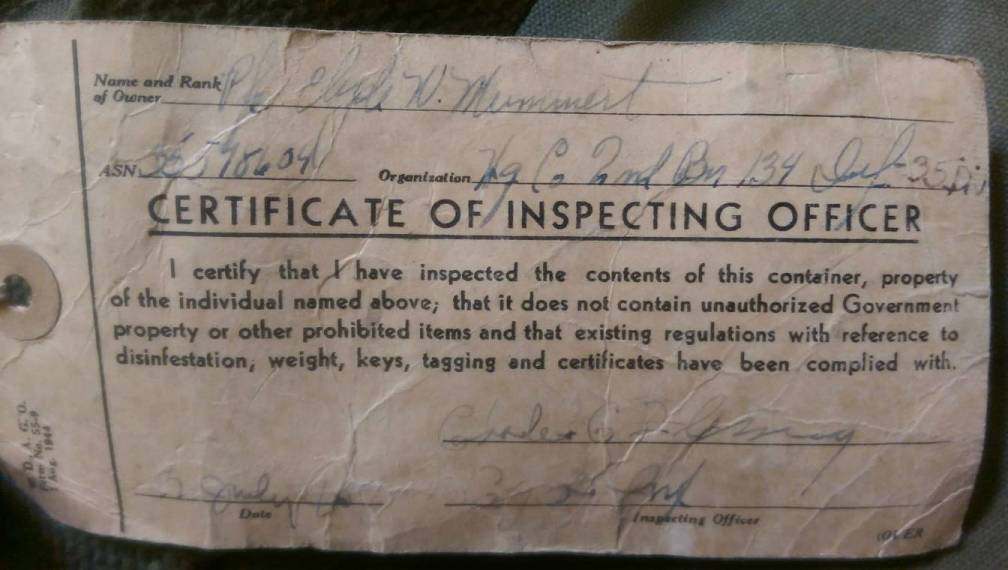 Name and Rank
of Owner Pfc Clyde W. Mummert
ASN Organization Hq Co 2nd Bn 134 Inf 35 Div
CERTIFICATE OF INSPECTING OFFICER
I certify that I have inspected the contents of this container, property
of the individual named above; that it does not contain unauthorized Government
property or other prohibited items and that existing regulations with reference to
disinfestation, weight, keys, tagging and certificates have been complied with.
Date
Inspecting Officer
W. D., A. G. O.
Form No. 55-9
Aug. 1944
(OVER